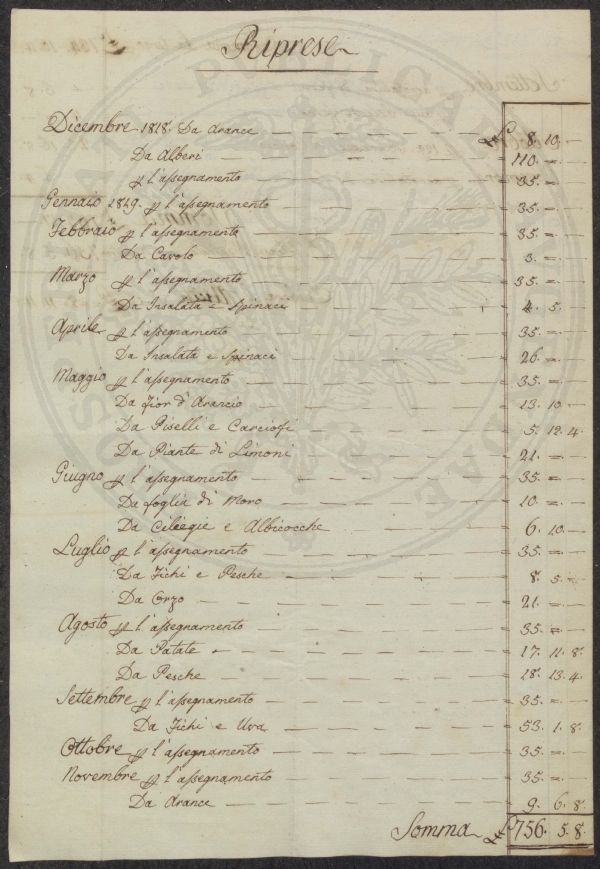 Riprese
Dicembre 1818. Da Arance 8. 10. —
Da Alberi 110. = —
p l'assegnamento 35. = —
Gennaio 1819. p l'assegnamento 35. = —
Febbraio p l'assegnamento 35. = —
Da Cavolo 3. = —
Marzo p l'assegnamento 35. = —
Da Insalata e Spinaci 4. 5. —
Aprile p l'assegnamento 35. = —
Da Insalata e Spinaci 26. = —
Maggio p l'assegnamento 35. = —
Da Fior d'Arancio 13. 10. —
Da Piselli e Carciofi 5. 12. 4.
Da Piante di Limoni 21. = —
Giugno p l'assegnamento 35. = —
Da foglia di Moro 10. = —
Da Ciliegie e Albicocche 6. 10. —
Luglio p l'assegnamento 35. = —
Da Fichi e Pesche 8. 5. —
Da Orzo 21. = —
Agosto p l'assegnamento 35. = —
Da Patate 17. 11. 8.
Da Pesche 18. 13. 4.
Settembre p l'assegnamento 35. = —
Da Fichi e Uva 53. 1. 8.
Ottobre p l'assegnamento 35. = —
Novembre p l'assegnamento 35. = —
Da Arance 9. 6. 8.
Somma 756. 5. 8.